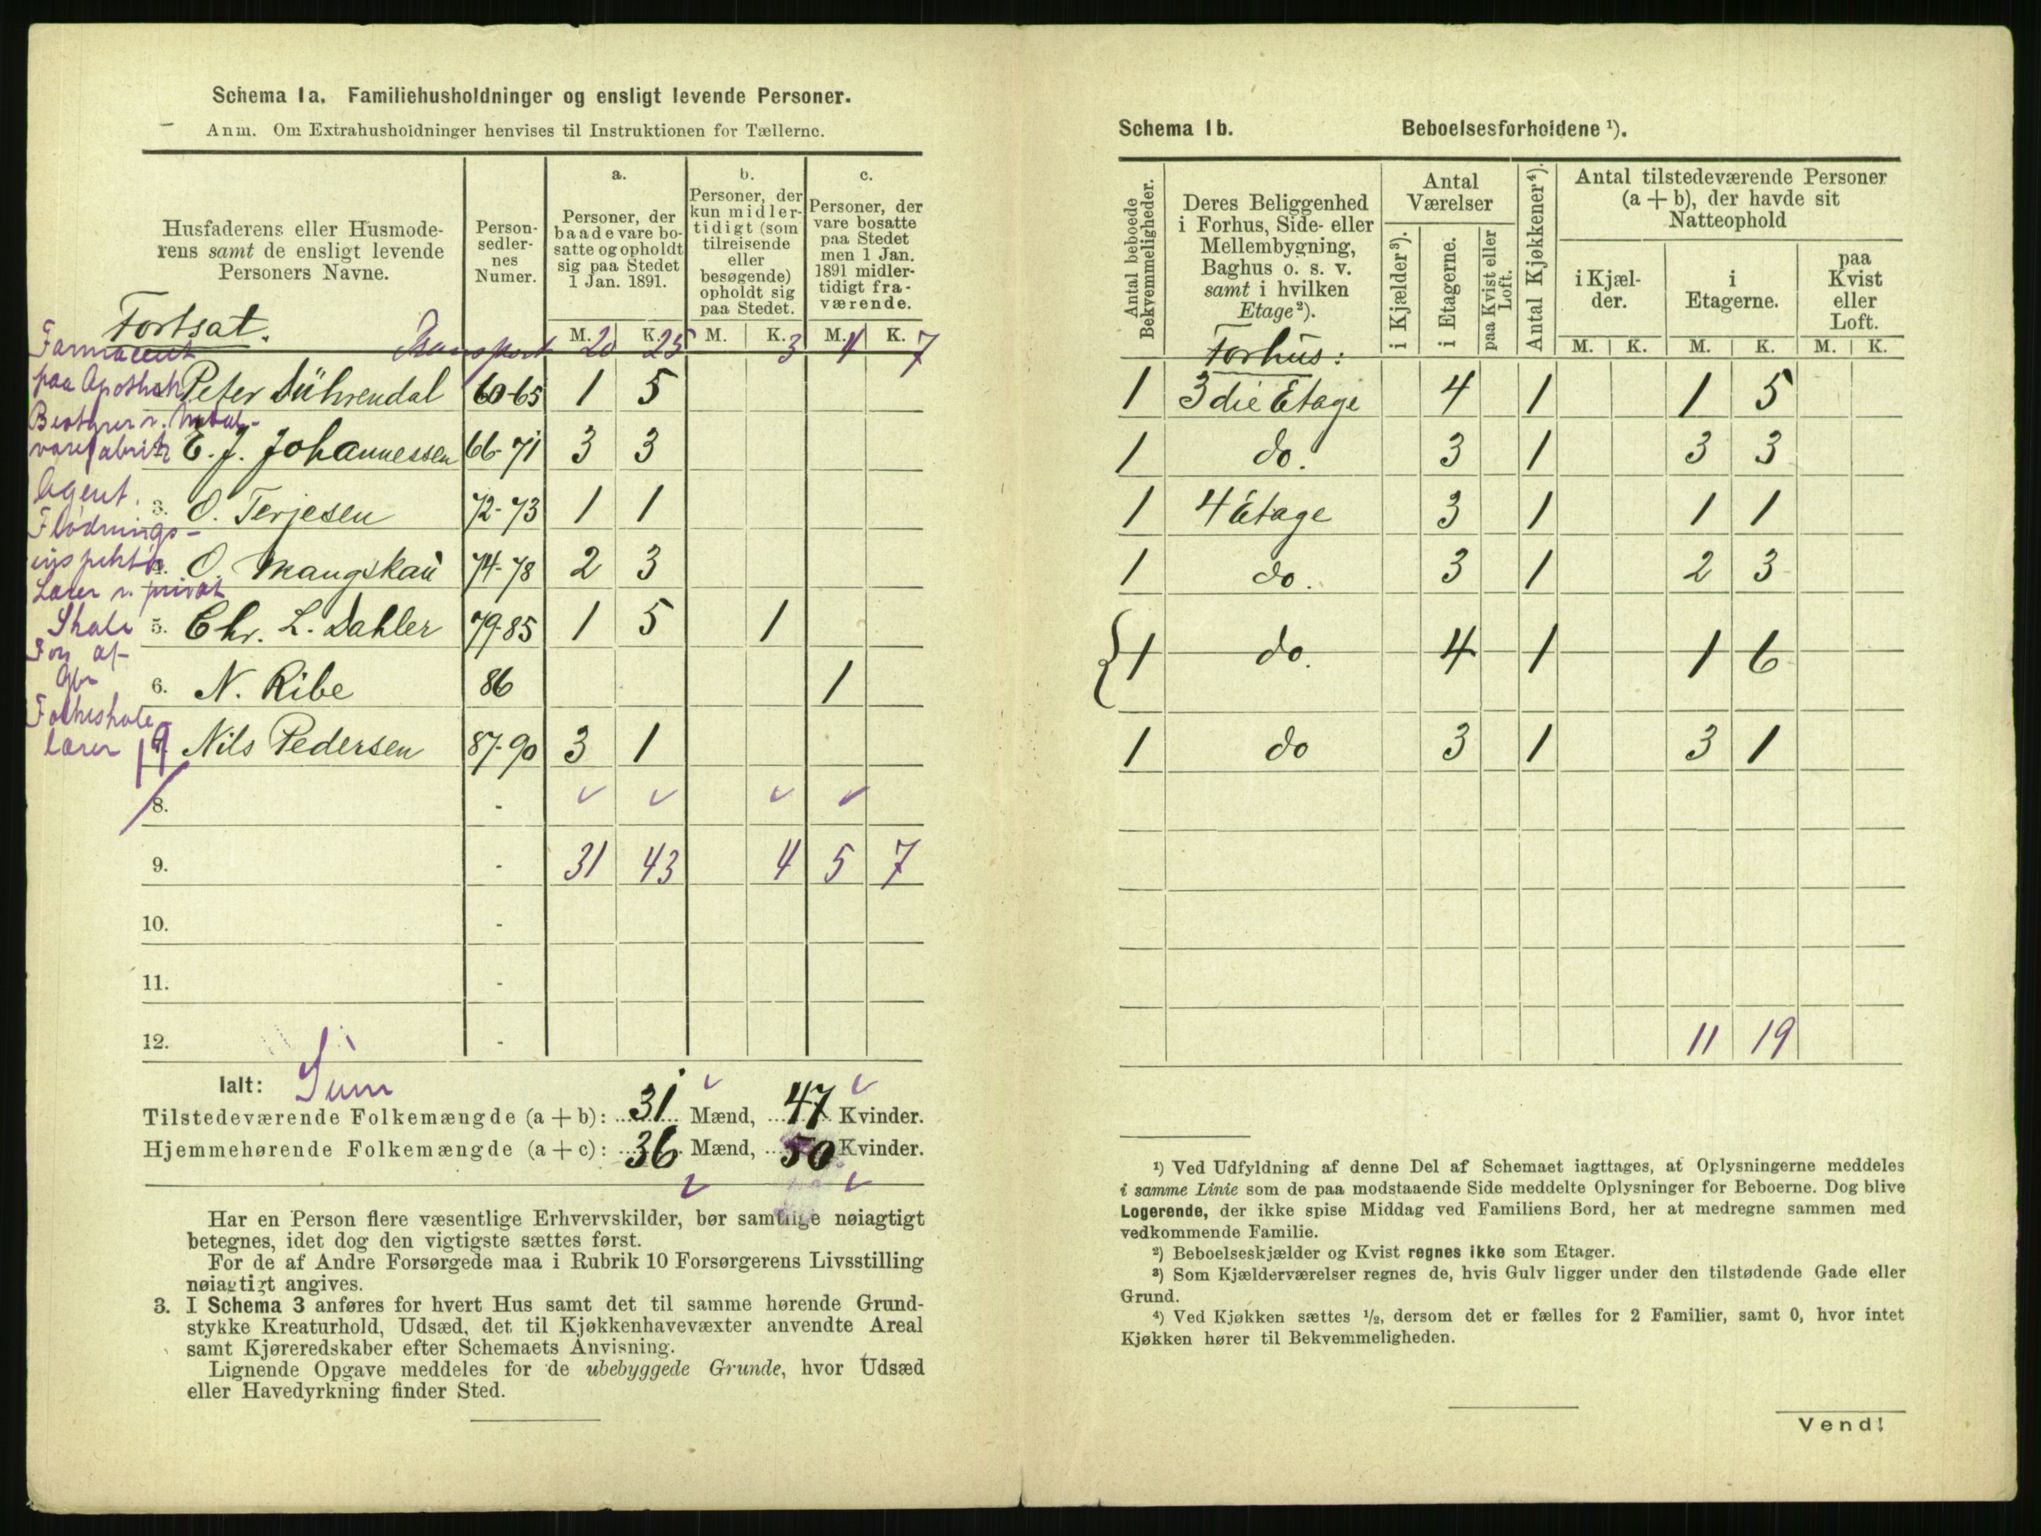 Schema 1a. Familiehusholdninger og ensligt levende Personer.
Anm. Om Extrahusholdninger henvises til Instruktionen for Tællerne.
Husfaderens eller Husmoderens samt de ensligt levende Personers Navne.
Person-sedler-nes Numer.
a. Personer, der baade vare bosatte og opholdt sig paa Stedet 1 Jan. 1891.
b. Personer, der kun midlertidigt (som tilreisende eller besøgende) opholdt sig paa Stedet.
c. Personer, der vare bosatte paa Stedet men 1 Jan. 1891 midlertidigt fraværende.
Fortsat.
M. K. M. K. M. K.
Transport 20 25 3 4 7
Farmaceut paa Apothek
Peter Dührendal 60-65 1 5
E. J. Johannessen 66-71 3 3
Agent.
3. O. Terjesen 72-73 1 1
Flødnings-inspektør
4. O. Mangskau 74-78 2 3
Lærer v. privat Skole
5. Chr. L. Dahler 79-85 1 5 1
6. N. Ribe 86 1
Folkeskole-lærer
Nils Pedersen 87-90 3 1
8. -
9. - 31 43 4 5 7
10. -
11. -
12. -
Ialt: Sum
Tilstedeværende Folkemængde (a + b): 31 Mænd, 47 Kvinder.
Hjemmehørende Folkemængde (a + c): 36 Mænd, 50 Kvinder.
Har en Person flere væsentlige Erhvervskilder, bør samtlige nøiagtigt
betegnes, idet dog den vigtigste sættes først.
For de af Andre Forsørgede maa i Rubrik 10 Forsørgerens Livsstilling
nøiagtigt angives.
3. I Schema 3 anføres for hvert Hus samt det til samme hørende Grund-
stykke Kreaturhold, Udsæd, det til Kjøkkenhavevæxter anvendte Areal
samt Kjøreredskaber efter Schemaets Anvisning.
Lignende Opgave meddeles for de ubebyggede Grunde, hvor Udsæd
eller Havedyrkning finder Sted.
Schema 1b. Beboelsesforholdene ¹).
Antal beboede Bekvemmeligheder.
Deres Beliggenhed i Forhus, Side- eller Mellembygning, Baghus o. s. v. samt i hvilken Etage ²).
Antal Værelser
i Kjælder ³).
i Etagerne.
paa Kvist eller Loft.
Antal Kjøkkener ⁴).
Antal tilstedeværende Personer (a + b), der havde sit Natteophold
i Kjælder.
i Etagerne.
paa Kvist eller Loft.
M. K. M. K. M. K.
Forhus:
1 3die Etage 4 1 1 5
1 do. 3 1 3 3
1 4 Etage 3 1 1 1
1 do. 3 1 2 3
1 do. 4 1 1 6
1 do 3 1 3 1
11 19
¹) Ved Udfyldning af denne Del af Schemaet iagttages, at Oplysningerne meddeles
i samme Linie som de paa modstaaende Side meddelte Oplysninger for Beboerne. Dog blive
Logerende, der ikke spise Middag ved Familiens Bord, her at medregne sammen med
vedkommende Familie.
²) Beboelseskjælder og Kvist regnes ikke som Etager.
³) Som Kjælderværelser regnes de, hvis Gulv ligger under den tilstødende Gade eller
Grund.
⁴) Ved Kjøkken sættes ½, dersom det er fælles for 2 Familier, samt 0, hvor intet
Kjøkken hører til Bekvemmeligheden.
Vend!